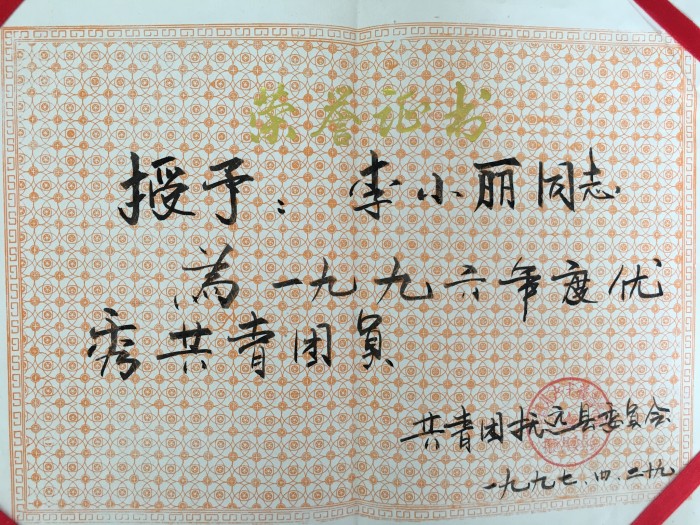 荣誉证书
授予：李小丽同志
为一九九六年度优
秀共青团员
共青团抚远县委员会
一九九七.四.二十九